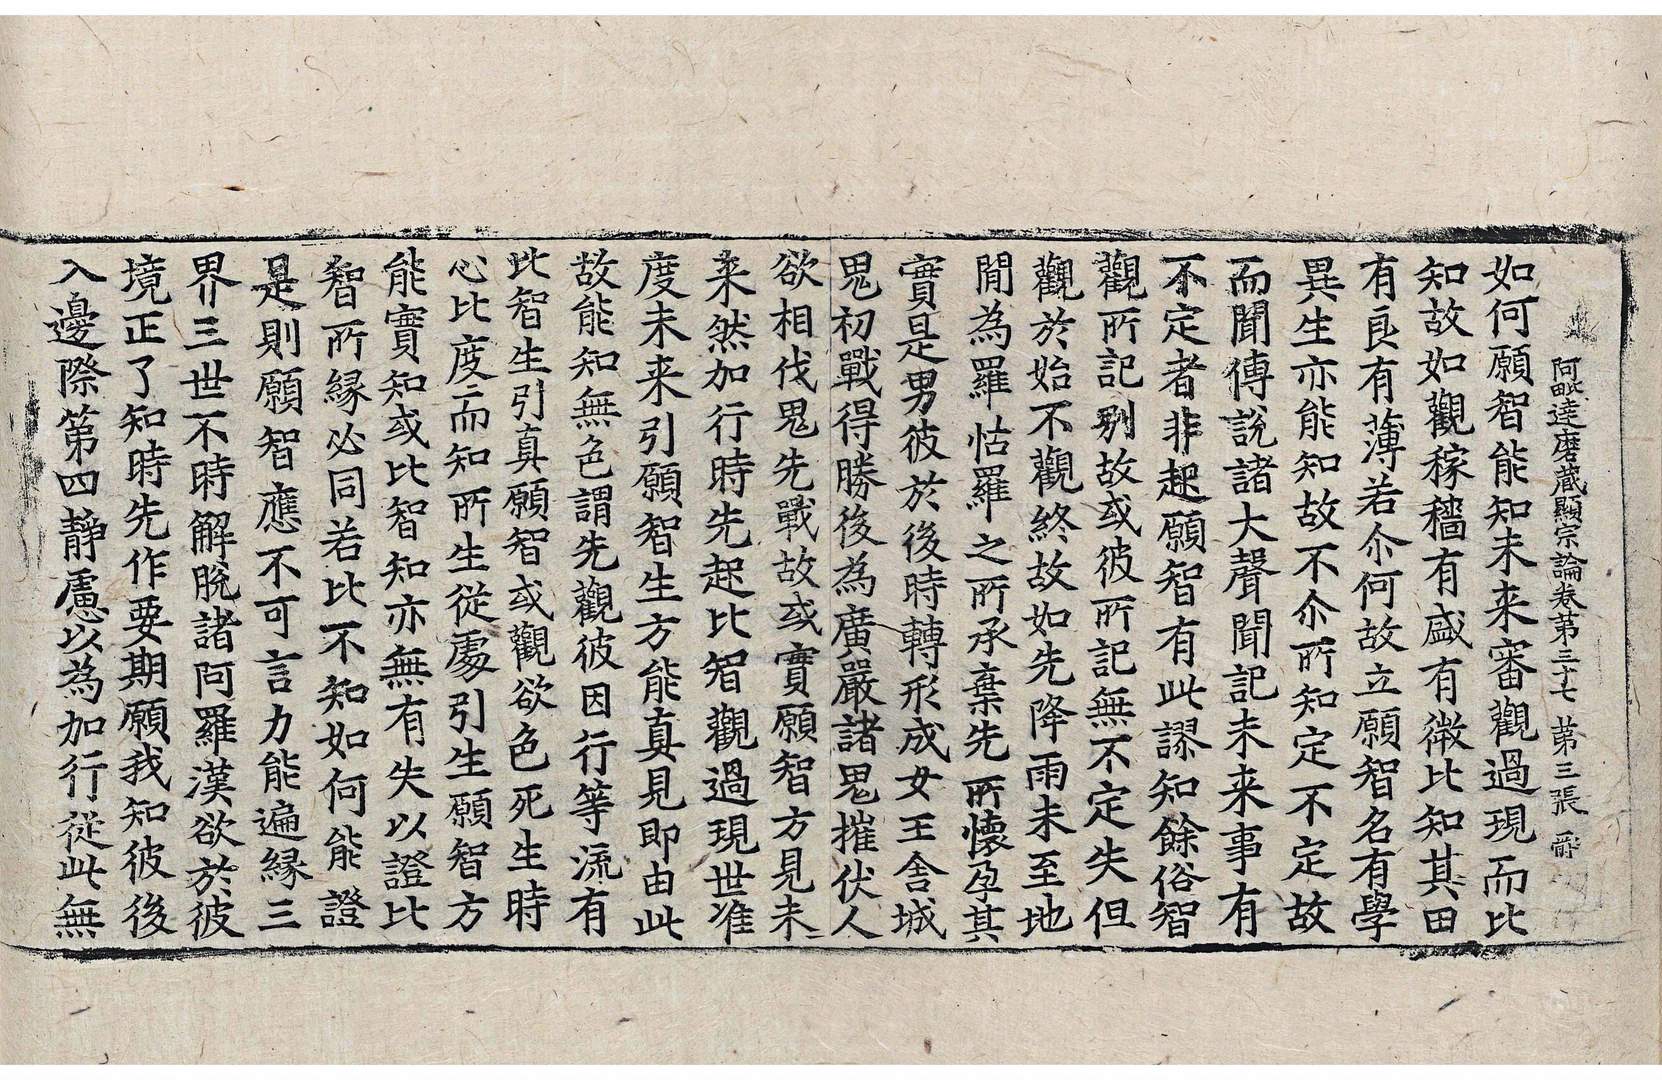 阿毗達磨蔵顯宗論卷第三十七 第三張
如何願智能知未来審觀過現而比
知故如觀稼穡有盛有徴比知其田
有良有薄若尒何故立願智名有學
異生亦能知故不尒所知定不定故
而聞傳說諸大聲聞記未来事有
不定者非起願智有此謬知餘俗智
觀所記別故或彼所記無不定失但
觀於始不觀終故如先降雨未至地
間為羅怙羅之所承棄先所懷孕其
實是男彼於後時轉形成女王舍城
鬼初戰得勝後為廣嚴諸鬼摧伏人
欲相伐鬼先戰故或實願智方見未
来然加行時先起比智觀過現世准
度未来引願智生方能真見即由此
故能知無色謂先觀彼因行等流有
比智生引真願智或觀欲色死生時
心比度而知所生從處引生願智方
能實知或比智知亦無有失以證比
智所緣必同若比不知如何能證
是則願智應不可言力能遍緣三
界三世不時解脫諸阿羅漢欲於彼
境正了知時先作要期願我知彼後
入邊際第四靜慮以為加行從此無